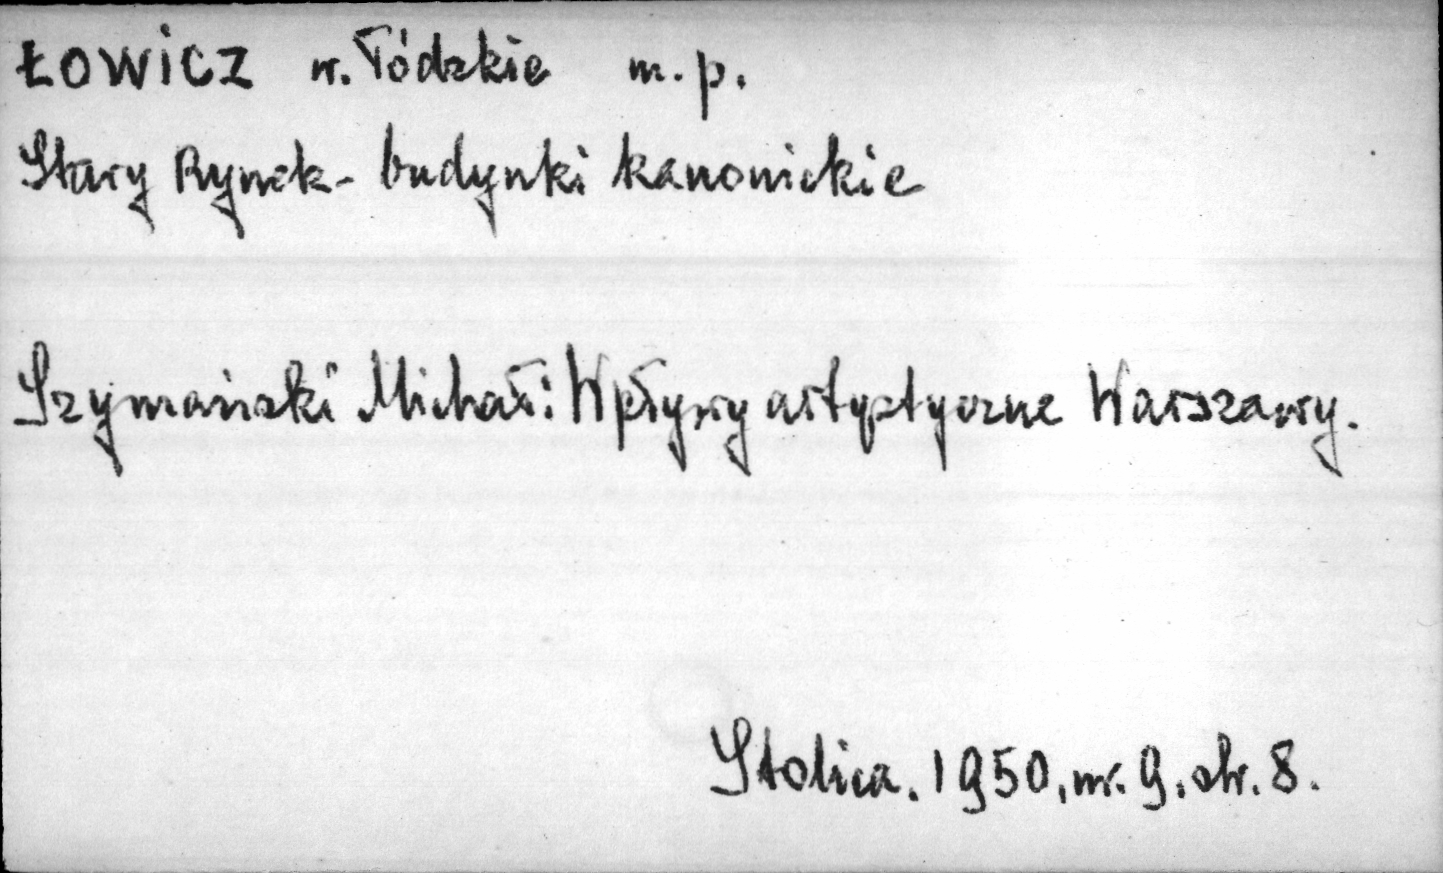 ŁOWICZ w. Łódzkie m. p.
Stary Rynek - budynki kanonickie
Szymański Michał: Wpływy artystyczne Warszawy.
Stolica. 1950, nr. 9. str. 8.